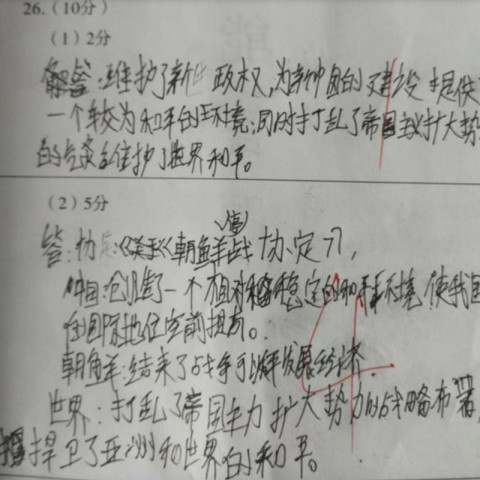 26.(10分)
(1)2分
答:维护了新生政权,为新中国的建设提供
一个较为和平的环境;同时打乱了帝国主义扩大势
的 维护了世界和平。
(2)5分
答: 《关于《朝鲜 战 协定》,
中国:创造了一个相对稳定的和平环境,使我国
的国际地位空前提高。
朝鲜:结束了战争可以 发展经济。
世界:打乱了帝国主 扩大势力的战略布署,
捍卫了亚洲和世界的和平。